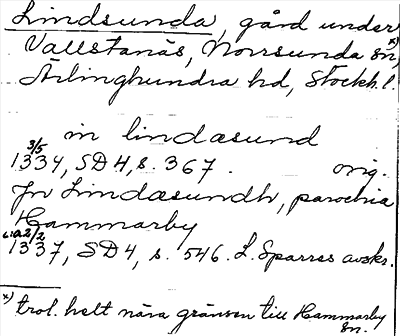 Lindsunda, gård under
Vallstanäs, Norrsunda sn, x)
Ärlinghundra hd, Stockh. l.
in lindasund
3/5 1334, SD4, s. 367. orig.
Jn Lindasundh, parochia
Hammarby
2/2 1337, SD4, s. 546. L. Sparres avskr.
x) trol. helt nära gränsen till Hammarby
sn.